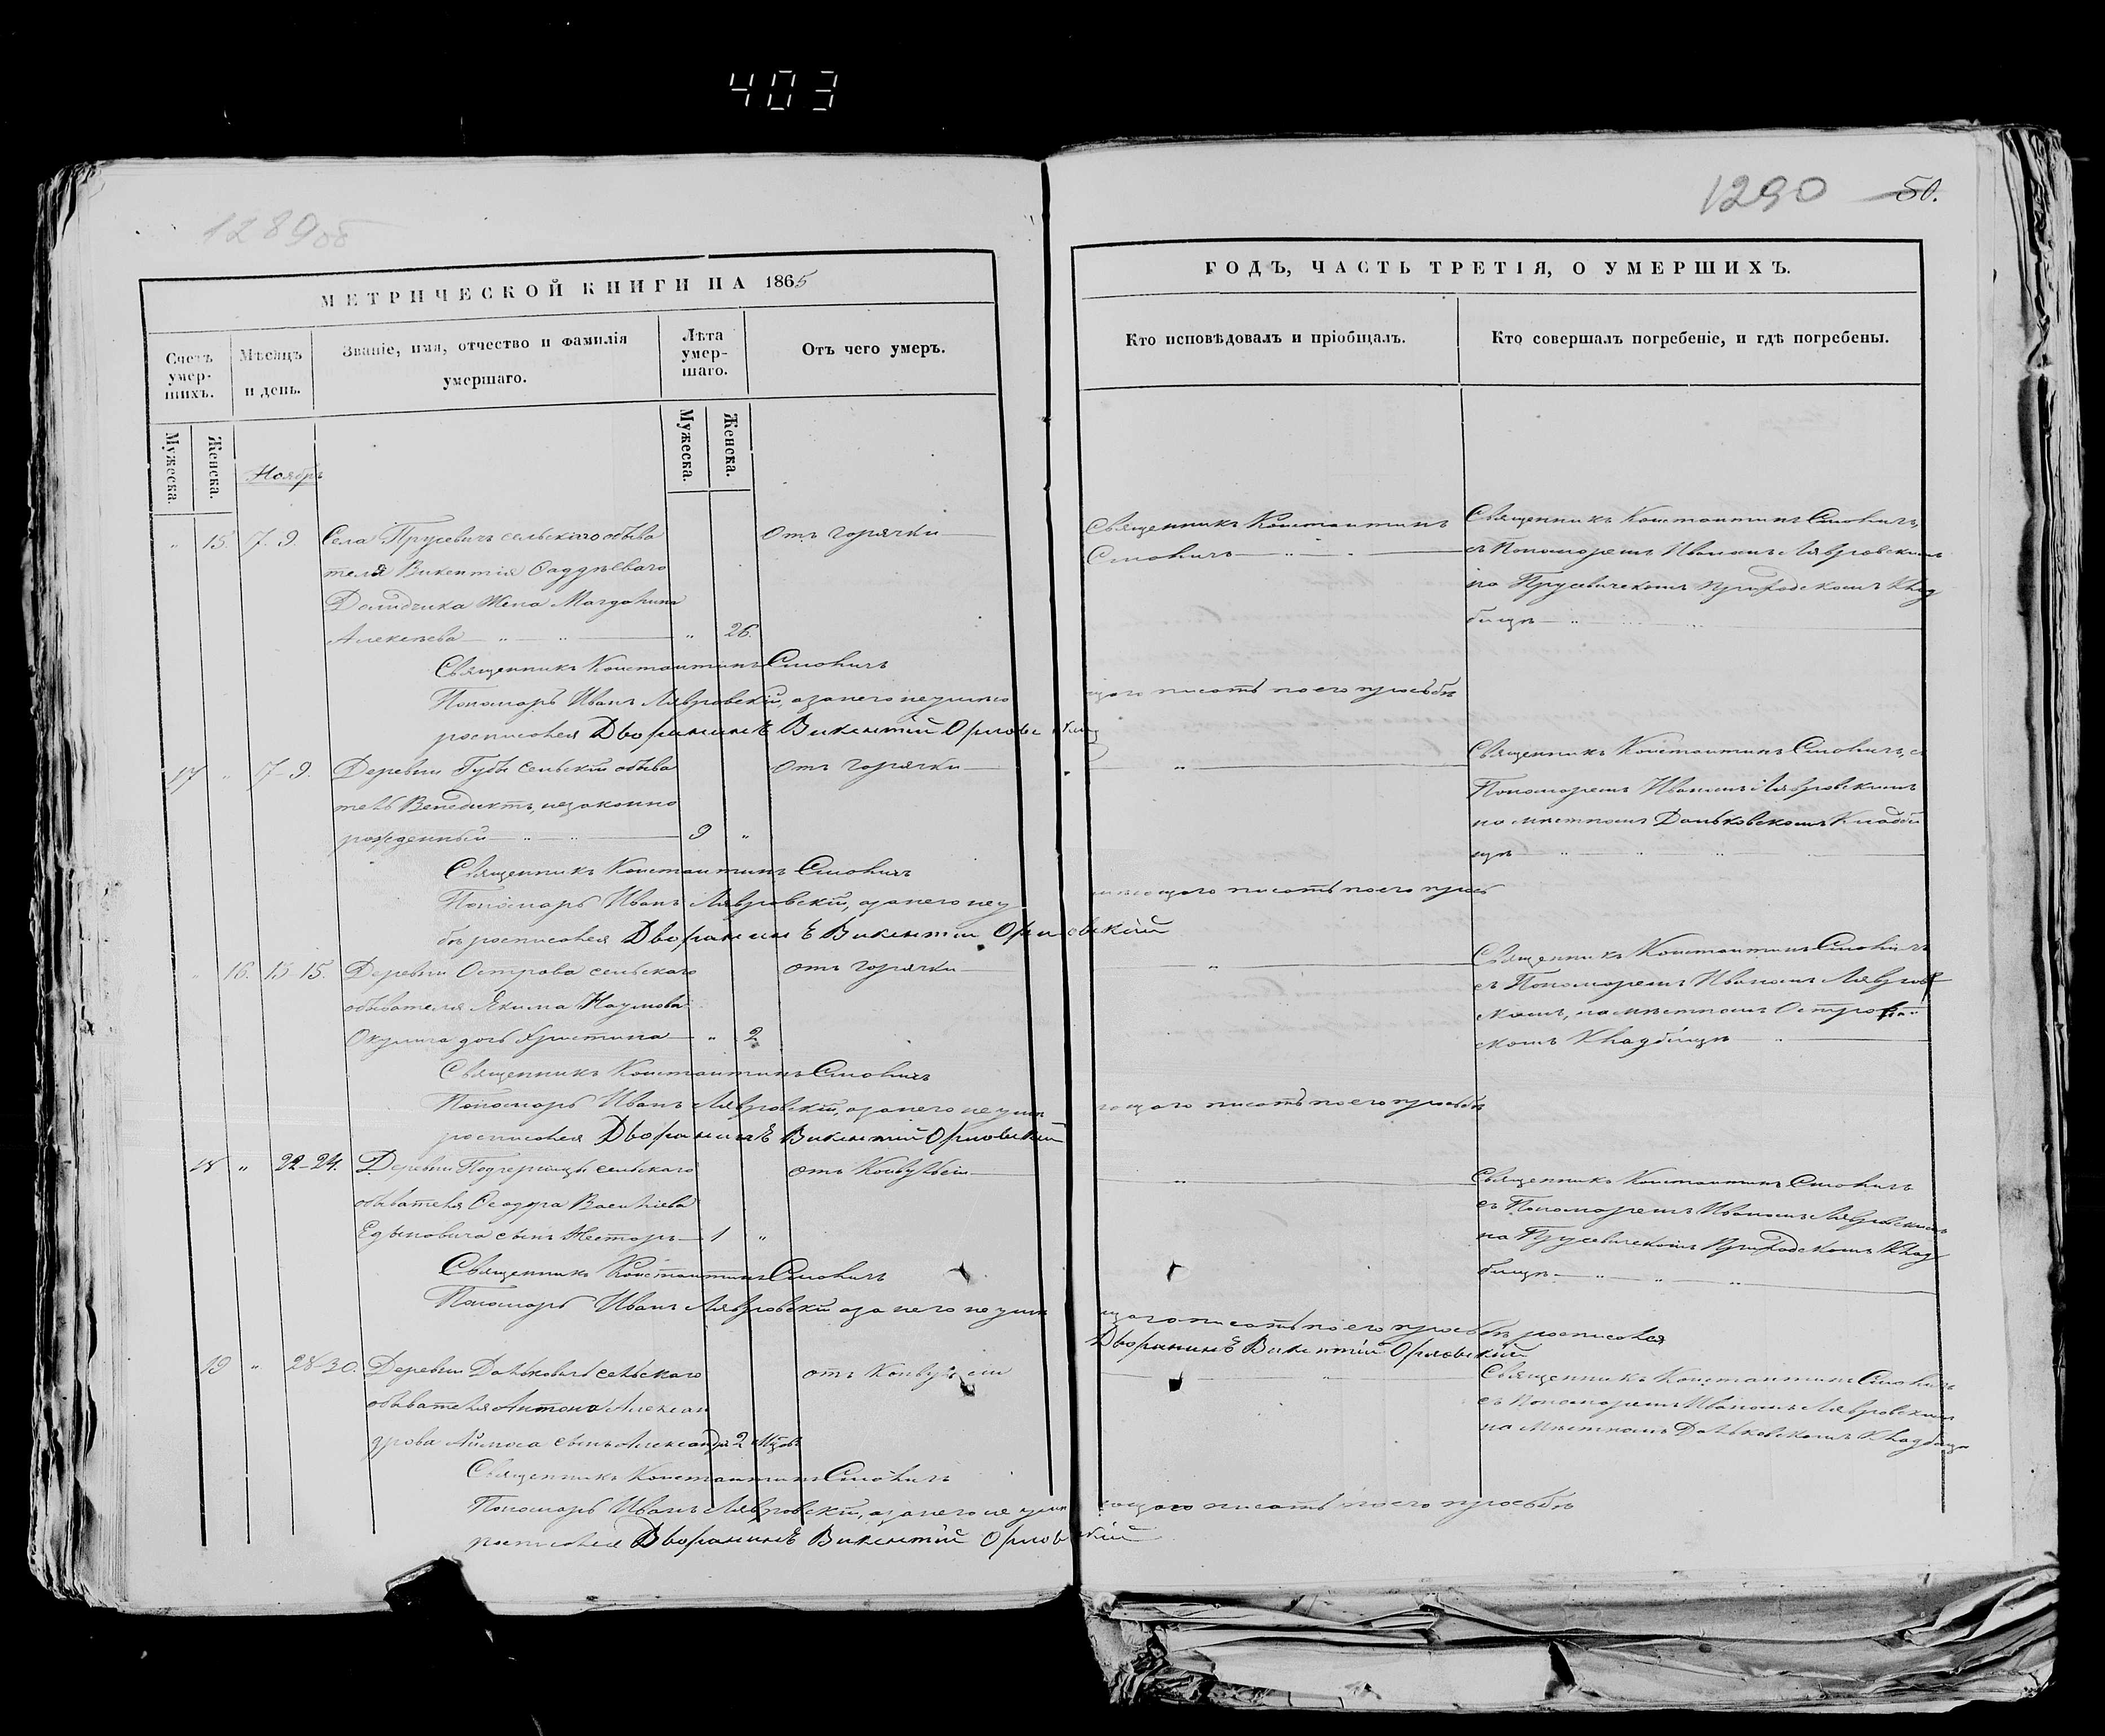 403
1289об
1290 50.
МЕТРИЧЕСКОЙ КНИГИ НА 1865
ГОДЪ, ЧАСТЬ ТРЕТІЯ, О УМЕРШИХЪ.
Счетъ умер-шихъ.
Мѣсяцъ и день.
Званіе, имя, отчество и фамилія умершаго.
Лѣта умер-шаго.
Отъ чего умеръ.
Кто исповѣдовалъ и пріобщалъ.
Кто совершалъ погребеніе, и гдѣ погребены.
Мужеска.
Женска.
Мужеска.
Женска.
Ноябрь
" 15. 7. 9. Села Прусевичъ сельскаго обыва
теля Викентія Фаддѣеваго
Демидчика жена Магдалина
Алексѣева " " 26.
отъ горячки
Священникъ Константинъ
Смоличъ
Священникъ Константинъ Смоличъ
съ Пономаремъ Иваномъ Лявровскимъ
на Прусевическомъ приходскомъ клад
бищѣ
Священникъ Константинъ Смоличъ
Пономарь Иванъ Лявровскій, а за него неумѣю
щаго писать по его просьбѣ
росписался Дворянинъ Викентій Орловскій
17 " 7-9. Деревни Губы сельскій обыва
тель Венедиктъ, незаконно
рожденный 9 "
отъ горячки
"
Священникъ Константинъ Смоличъ, съ
Пономаремъ Иваномъ Лявровскимъ
на мѣстномъ Даньковскомъ Кладби
щѣ
Священникъ Константинъ Смоличъ
Пономарь Иванъ Лявровскій, а за него неу
мѣющаго писать по его прось
бѣ росписался Дворянинъ Викентій Орловскій
" 16. 13 15. Деревни Острова сельскаго
обывателя Якима Наумова
Окулича дочь Христина " 2
отъ горячки
"
Священникъ Константинъ Смоличъ
съ Пономаремъ Иваномъ Лявров
скимъ, на мѣстномъ Островъ
скомъ Кладбищѣ
Священникъ Константинъ Смоличъ
Пономарь Иванъ Лявровскій, а за него неумѣ
ющаго писать по его просьбѣ
росписался Дворянинъ Викентій Орловскій
18 " 22-24. Деревни сельскаго
обывателя Ѳеодора Васильева
сынъ Несторъ 1 "
отъ Конвульсіи
"
Священникъ Константинъ Смоличъ
съ Пономаремъ Иваномъ Лявровскимъ
на Прусевическомъ Приходскомъ Клад
бищѣ
Священникъ Константинъ Смоличъ
Пономарь Иванъ Лявровскій а за него неумѣ
ющаго писать по его просьбѣ росписался
Дворянинъ Викентій Орловскій
19 " 28-30. Деревни Даньковичъ сельскаго
обывателя Антона Алексан
дрова сынъ Александръ 2 мѣсяц.
отъ Конвульсіи
"
Священникъ Константинъ Смоличъ
съ Пономаремъ Иваномъ Лявровскимъ
на Мѣстномъ Даньковскомъ Кладбищѣ
Священникъ Константинъ Смоличъ
Пономарь Иванъ Лявровскій, а за него неумѣ
ющаго писать по его просьбѣ
росписался Дворянинъ Викентій Орловскій